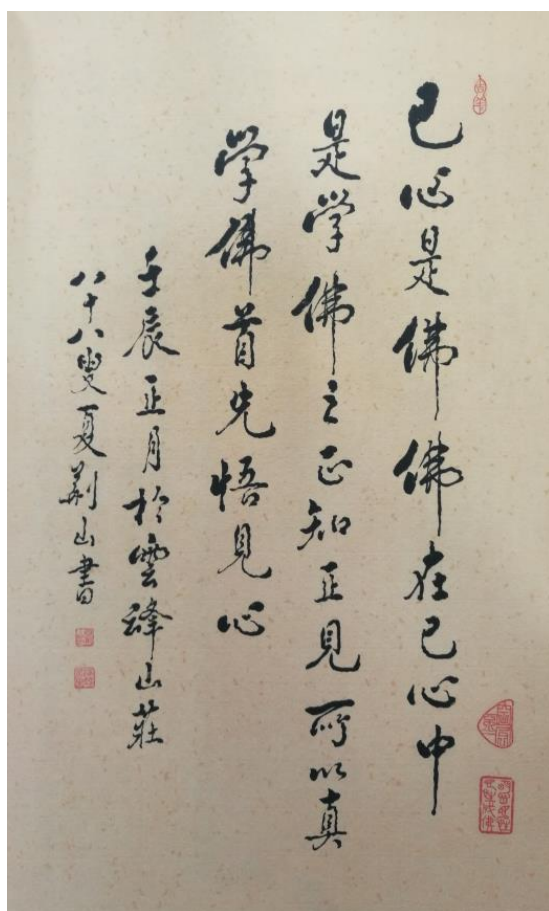 己心是佛佛在己心中
是学佛之正知正见所以真
学佛首先悟见心
壬辰正月於雲峰山莊
八十八叟夏荆山書